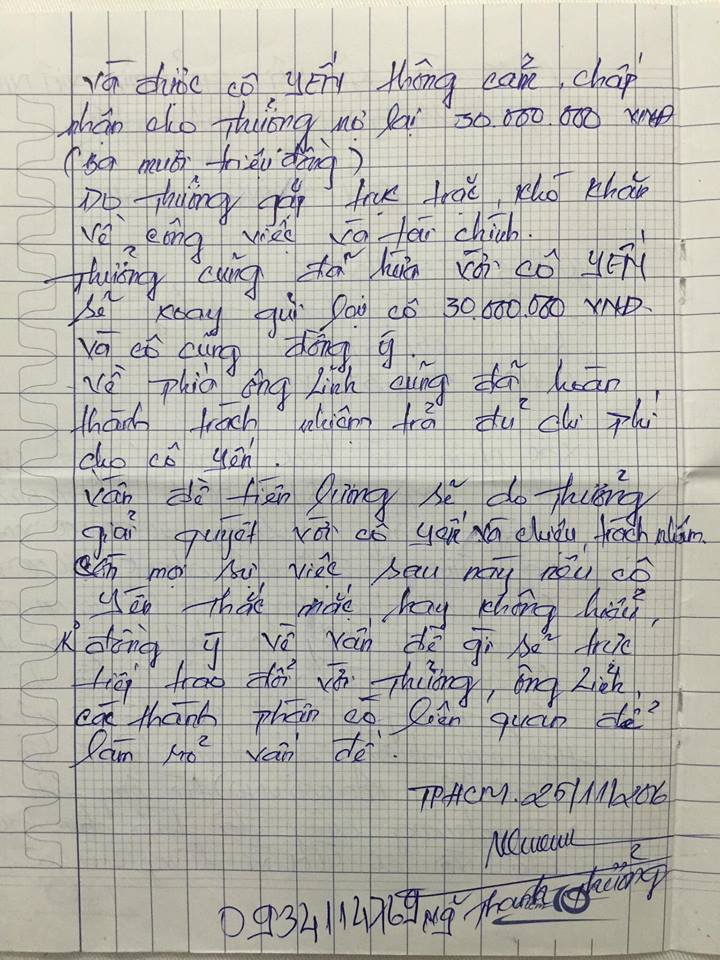 và được cô YẾN thông cảm, chấp
nhận cho Thưởng nợ lại 30.000.000 VNĐ
(Ba mươi triệu đồng)
Do Thưởng gặp trục trặc, khó khăn
về công việc và tài chính.
Thưởng cũng đã hứa với cô YẾN
sẽ xoay gửi lại cô 30.000.000 VNĐ.
và cô cũng đồng ý.
Về phía ông Linh cũng đã hoàn
thành trách nhiệm trả đủ chi phí
cho cô Yến.
vấn đề tiền lương sẽ do Thưởng
giải quyết với cô Yến và chiệu trách nhiệm.
Còn mọi sự việc sau này nếu cô
Yến thắc mắc hay không hiểu,
K° đồng ý về vấn đề gì sẽ trực
tiếp trao đổi với Thưởng, ông Linh,
các thành phần có liên quan để
làm rõ vấn đề.
TPHCM. 25/11/2016
0934114769 Ng~ Thanh Thưởng